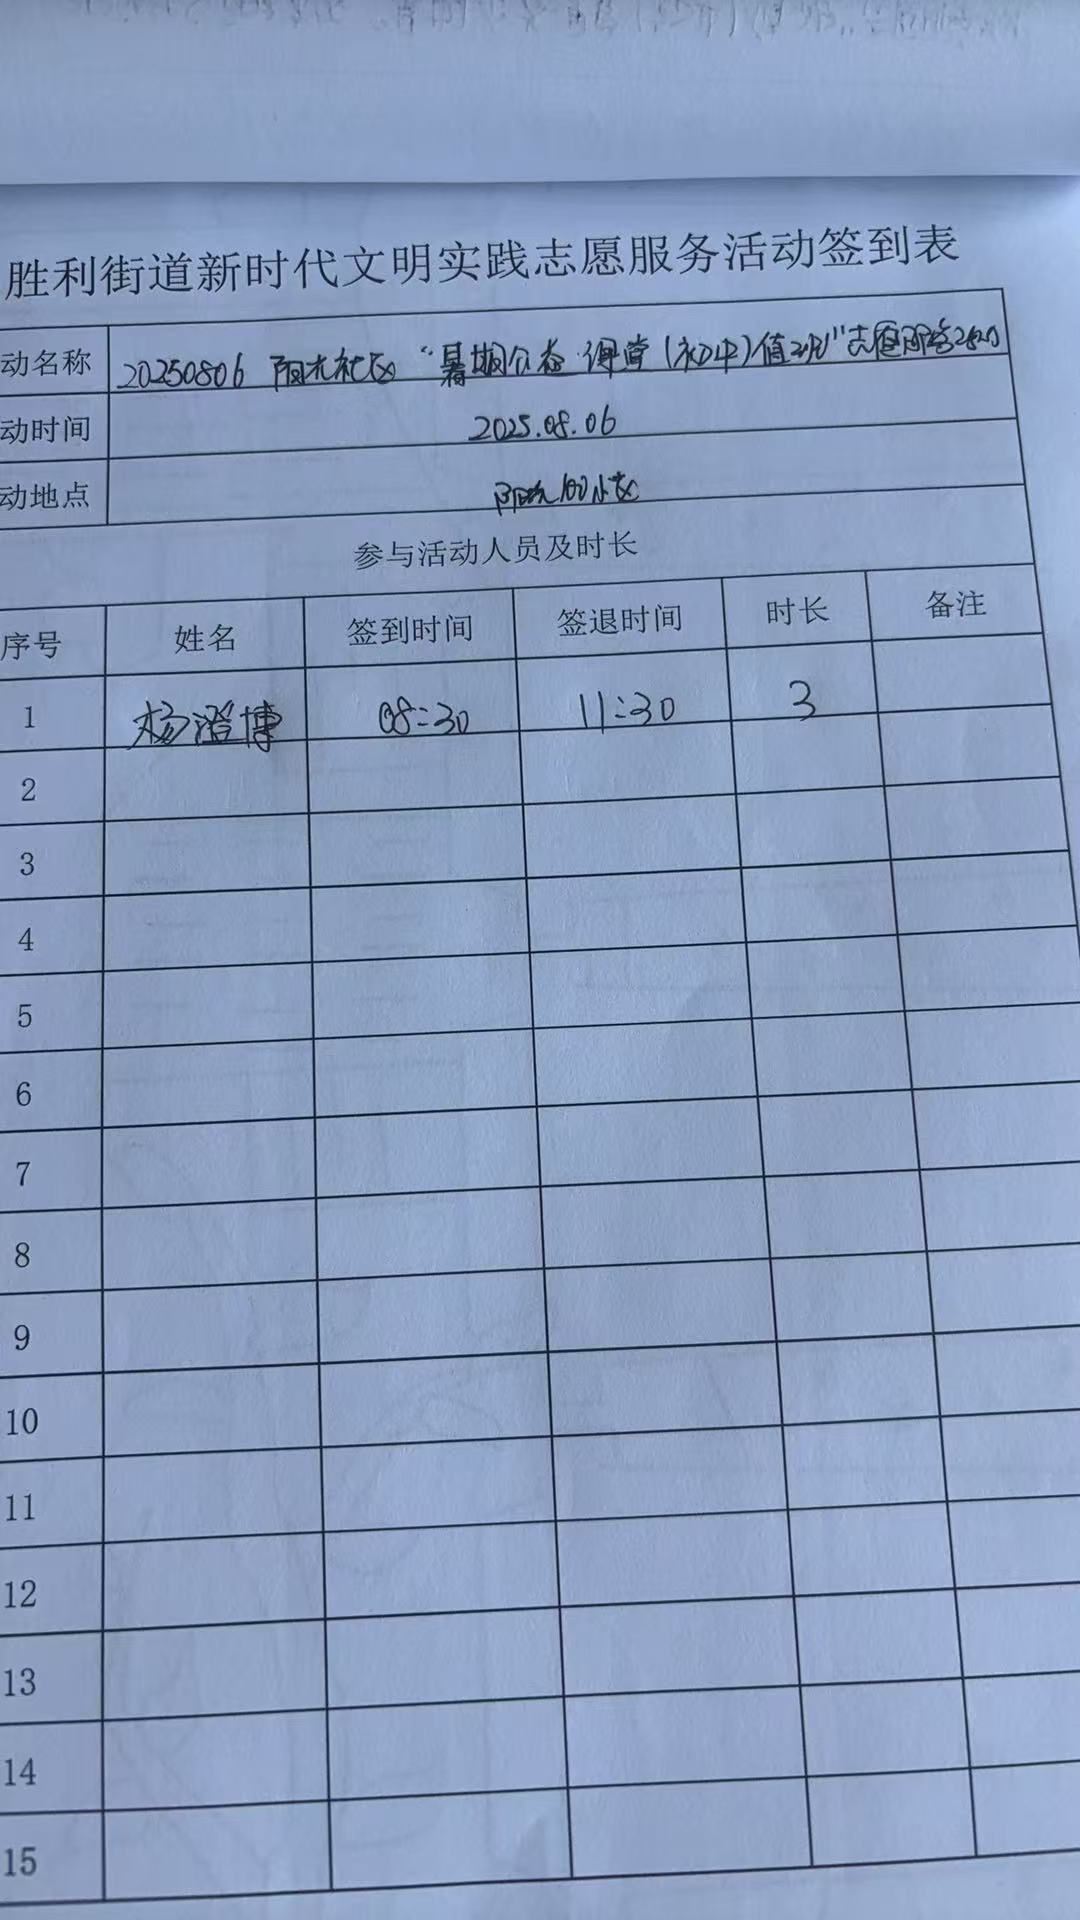 胜利街道新时代文明实践志愿服务活动签到表
动名称 20250806 阳光社区 “暑期公益课堂(初中)值班”志愿服务活动
动时间 2025.08.06
动地点 阳光100小区
参与活动人员及时长
序号 姓名 签到时间 签退时间 时长 备注
1 杨澄博 08:30 11:30 3
2
3
4
5
6
7
8
9
10
11
12
13
14
15